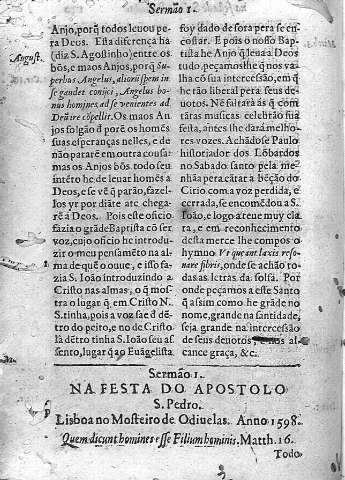 Sermão 1.
August.
Anjo, porq̃ todos leuou pe
ra Deos. Esta differẽça ha
(diz S. Agostinho) entre os
bõs, e maos Anjos, porq̃ Su
perbus Angelus, aliorũ spem in
se gaudet conijci, Angelus bo
nus homines, ad se venientes ad
Deũ ire cõpellit. Os maos An
jos folgão q̃ porẽ os homẽs
suas esperanças nelles, e de
não pararẽ em outra cousa
mas os Anjos bõs, todo seu
intẽto he de leuar homẽs a
Deos, e se vẽ q̃ parão, fazel-
los yr por diãte atè chega-
rẽ â Deos. Pois este oficio
fazia o grãde Baptista cõ ser
voz, cujo oficio he introdu-
zir o meu pensamẽto na al-
ma de quẽ o ouue, e isto fa-
zia S. Ioão introduzindo a
Cristo nas almas, o q̃ mos-
tra o lugar q̃ em Cristo N.
S. tinha, pois a voz sae d' dẽ-
tro do peito, e no de Cristo
lâ dẽtro tinha S. Ioão seu as
sento, lugar q̃ ao Euãgelista
foy dado de fora pera se en-
costar. E pois o nosso Bap-
tista he Anjo q̃ leua a Deos
tudo, peçamoslhe q̃ nos va-
lha cõ sua intercessão, em q̃
he tão liberal pera seus de-
uotos. Ne faltarâ âs q̃ com
tãtas musicas celebrão sua
festa, antes lhe darâ melho-
res vozes. Achãdose Paulo
historiador dos Lõbardos
no Sabado santo pela me-
nhãa pera cãtar a bẽção do
Cirio com a voz perdida, e
cerrada, se encomẽdou a S.
Ioão, e logo a teue muy cla
ra, e em reconhecimento
desta merce lhe compos o
hymno Vt queant laxis reso-
nare fibris, onde se achão to
das as letras da solfa. Por
onde peçamos a este Santo
q̃ assim como he grãde no
nome, grande na santidade,
seja grande na intercessão
de seus deuotos, e nos al-
cance graça, &c.
Sermão 1.
NA FESTA DO APOSTOLO
S. Pedro.
Lisboa no Mosteiro de Odiuelas. Anno 1598.
Quem dicunt homines esse Filium hominis. Matth. 16.
Todo